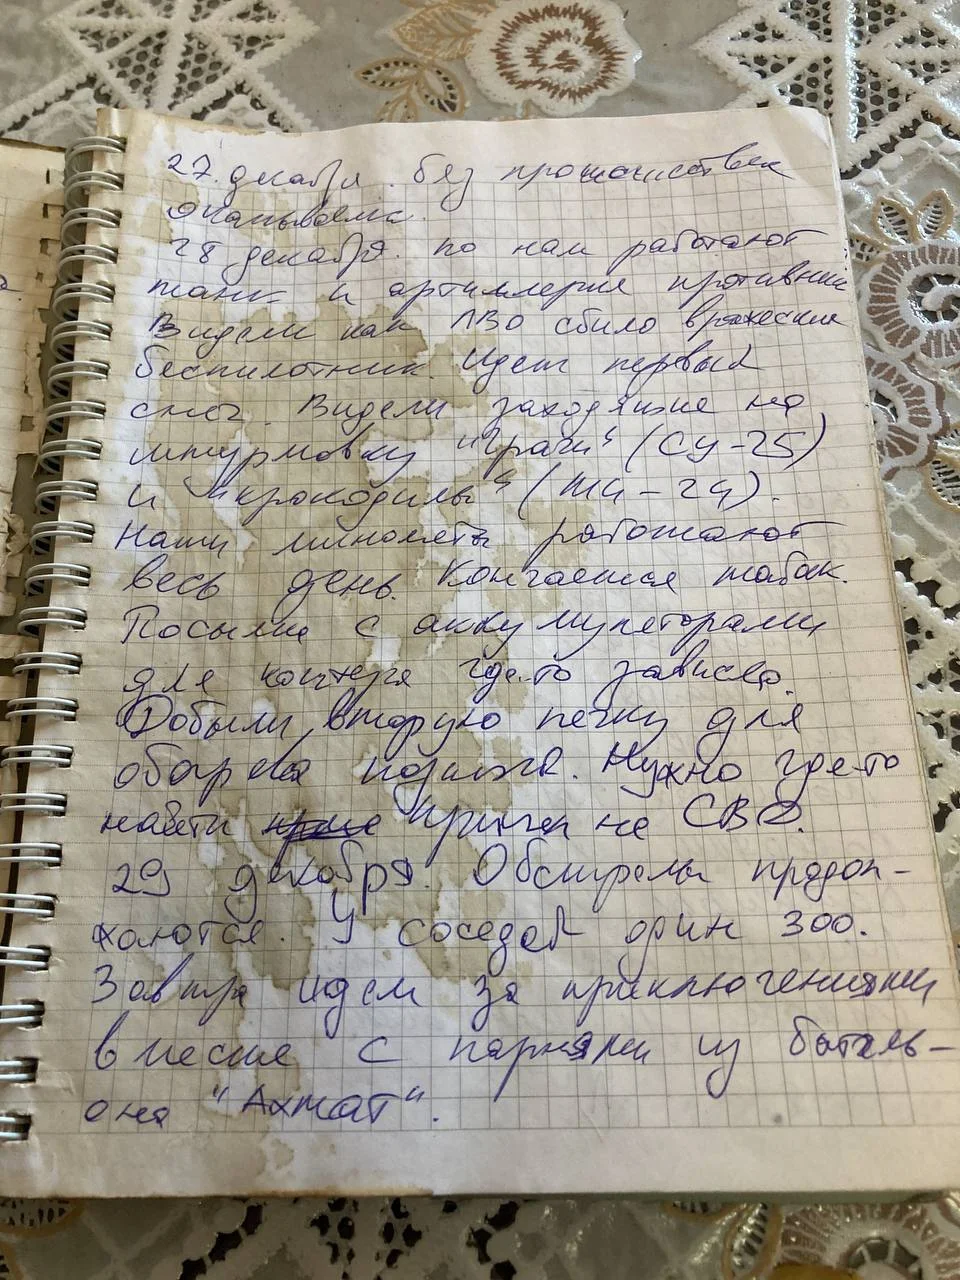 27. декабря. без происшествий
Окапываемся.
28 декабря. по нам работают
танк и артиллерия противника
Видели как ПВО сбило вражеский
беспилотник. Идет первый
снег. Видели заходящие на
штурмовку "грачи" (СУ-25)
и "крокодилы" (Ми-24).
Наши миномёты работают
весь день. Кончается табак.
Посылка с аккумуляторами
для коптера где-то зависла.
Добыли вторую печку для
обогрева позиций. Нужно где-то
найти прицел на СВД.
29 декабря. Обстрелы продол-
жаются. У соседей один 300.
Завтра идем за приключениями
вместе с парнями из баталь-
она "Ахмат".